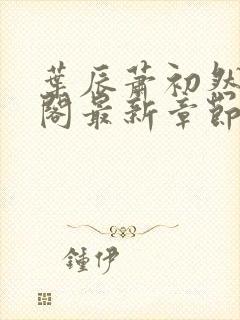 葉辰蕭初然
閣最新章節
鍾伊